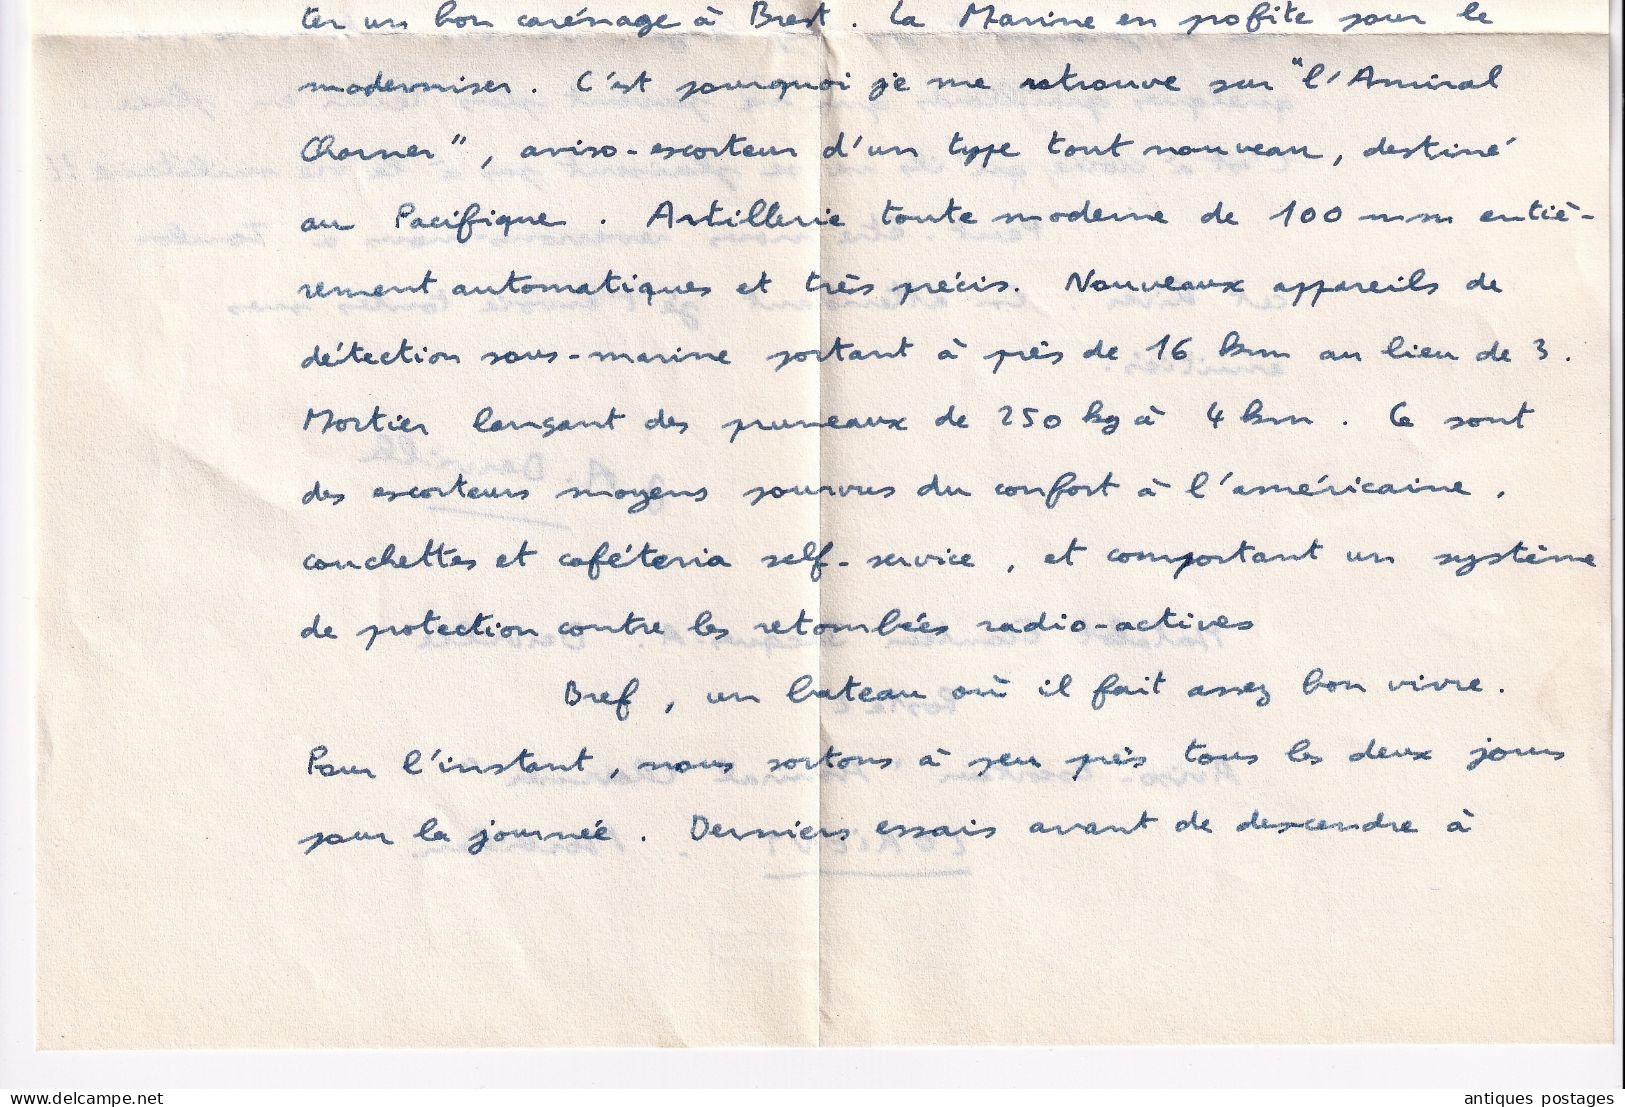 ter un bon carénage à Brest. La Marine en profite pour le
moderniser. C'est pourquoi je me retrouve sur "l'Amiral
Charner", aviso-escorteur d'un type tout nouveau, destiné
au Pacifique. Artillerie toute moderne de 100 mm entiè-
rement automatiques et très précis. Nouveaux appareils de
détection sous-marine portant à près de 16 km au lieu de 3.
Mortier lançant des pruneaux de 250 kg à 4 km. Ce sont
des escorteurs moyens pourvus du confort à l'américaine,
couchettes et caféteria self-service, et comportant un système
de protection contre les retombées radio-actives
Bref, un bateau où il fait assez bon vivre.
Pour l'instant, nous sortons à peu près tous les deux jours
pour la journée. Derniers essais avant de descendre à
delcampe.net
antiques postages